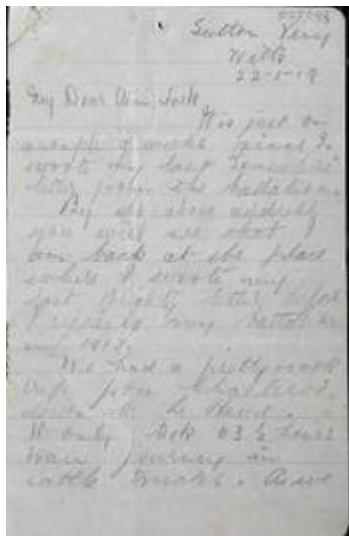 Sutton Veny
Wilts
22-1-19
My Dear
It is just a
couple of weeks since I
wrote my last
letter from the battalion.
By the above address
you will see that I
am back at the place
where I wrote my
last letter before
I my battalion
in 191
We had a pretty
trip from Charleroi
down to Le Havre.
It only took 63 ½ hours
train journey in
cattle trucks. As we